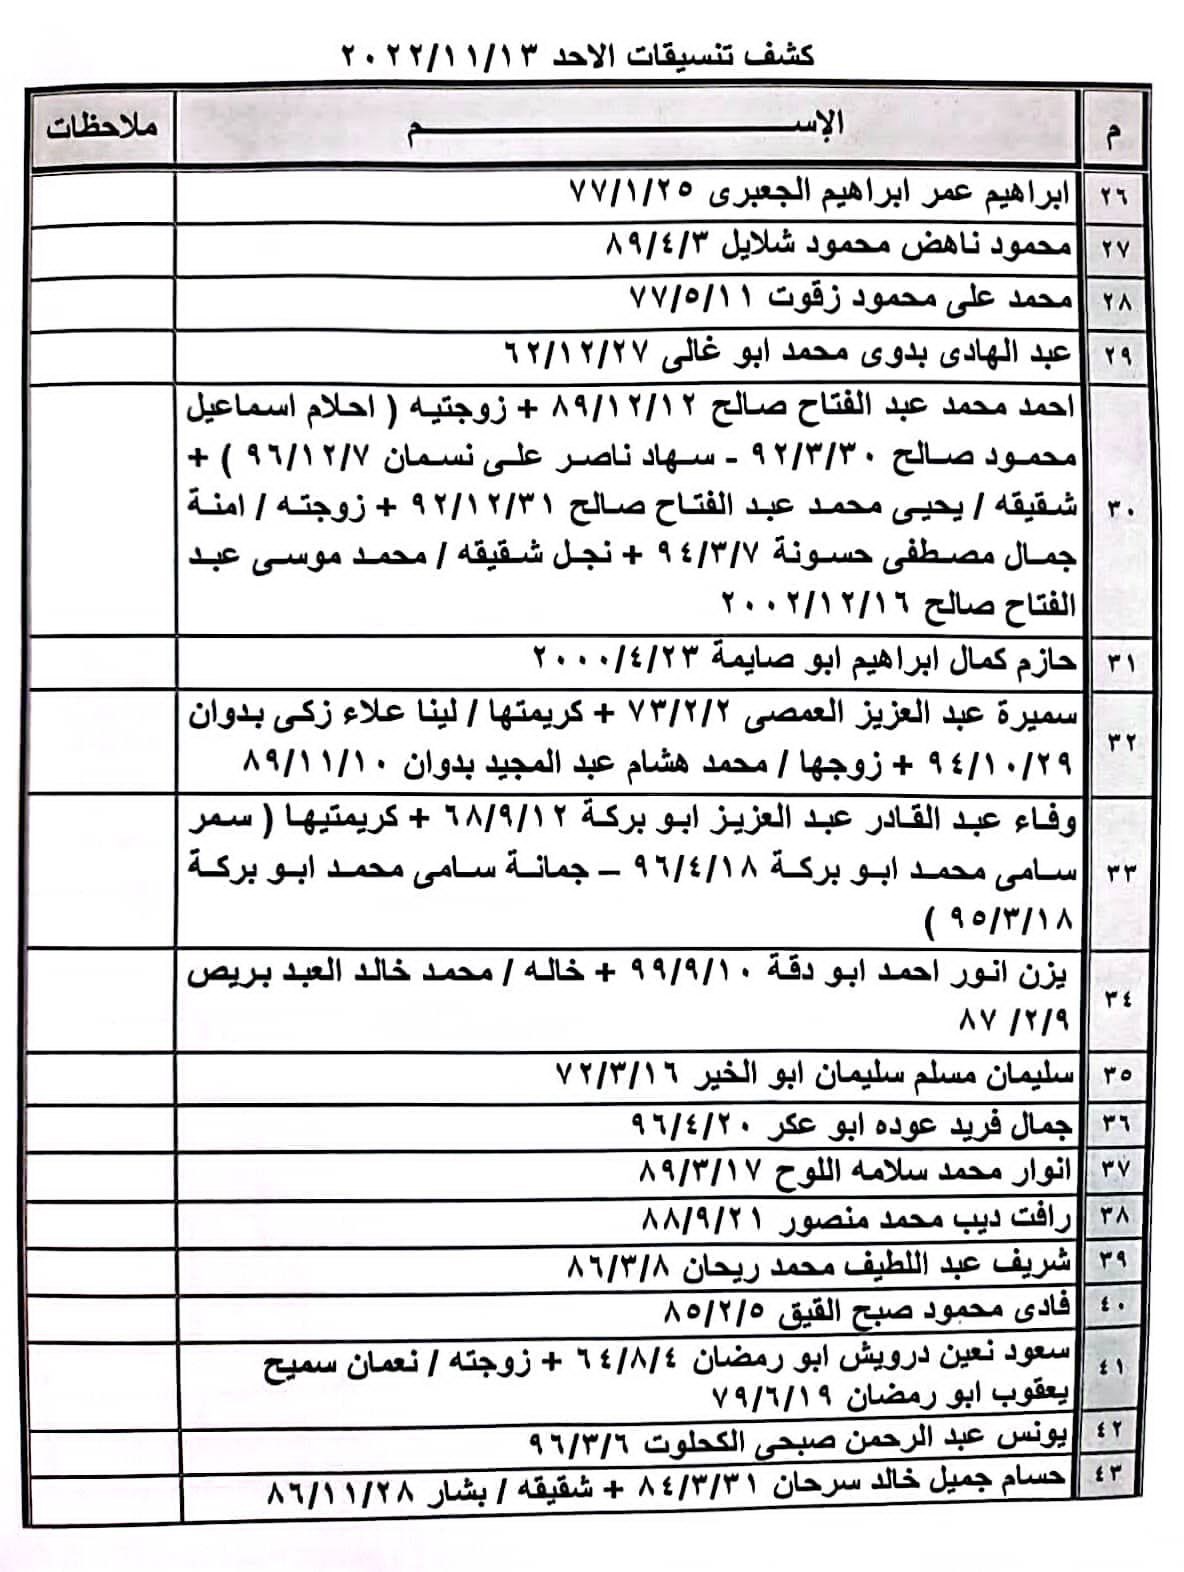 كشف تنسيقات الاحد ٢٠٢٢/١١/١٣
م الإســـــــــــــــــــــم ملاحظات
٢٦ ابراهيم عمر ابراهيم الجعبرى ٧٧/١/٢٥
٢٧ محمود ناهض محمود شلايل ٨٩/٤/٣
٢٨ محمد على محمود زقوت ٧٧/٥/١١
٢٩ عبد الهادى بدوى محمد ابو غالى ٦٢/١٢/٢٧
احمد محمد عبد الفتاح صالح ٨٩/١٢/١٢ + زوجتيه ( احلام اسماعيل
محمود صالح ٩٢/٣/٣٠ - سهاد ناصر على نسمان ٩٦/١٢/٧ ) +
٣٠ شقيقه / يحيى محمد عبد الفتاح صالح ٩٢/١٢/٣١ + زوجته / امنة
جمال مصطفى حسونة ٩٤/٣/٧ + نجل شقيقه / محمد موسى عبد
الفتاح صالح ٢٠٠٢/١٢/١٦
٣١ حازم كمال ابراهيم ابو صايمة ٢٠٠٠/٤/٢٣
٣٢ سميرة عبد العزيز العمصى ٧٣/٢/٢ + كريمتها / لينا علاء زكى بدوان
٩٤/١٠/٢٩ + زوجها / محمد هشام عبد المجيد بدوان ٨٩/١١/١٠
وفاء عبد القادر عبد العزيز ابو بركة ٦٨/٩/١٢ + كريمتيها ( سمر
٣٣ سامى محمد ابو بركة ٩٦/٤/١٨ – جمانة سامى محمد ابو بركة
٩٥/٣/١٨ )
٣٤ يزن انور احمد ابو دقة ٩٩/٩/١٠ + خاله / محمد خالد العبد بريص
٨٧ /٢/٩
٣٥ سليمان مسلم سليمان ابو الخير ٧٢/٣/١٦
٣٦ جمال فريد عوده ابو عكر ٩٦/٤/٢٠
٣٧ انوار محمد سلامه اللوح ٨٩/٣/١٧
٣٨ رافت ديب محمد منصور ٨٨/٩/٢١
٣٩ شريف عبد اللطيف محمد ريحان ٨٦/٣/٨
٤٠ فادى محمود صبح القيق ٨٥/٢/٥
٤١ سعود نعين درويش ابو رمضان ٦٤/٨/٤ + زوجته / نعمان سميح
يعقوب ابو رمضان ٧٩/٦/١٩
٤٢ يونس عبد الرحمن صبحى الكحلوت ٩٦/٣/٦
٤٣ حسام جميل خالد سرحان ٨٤/٣/٣١ + شقيقه / بشار ٨٦/١١/٢٨